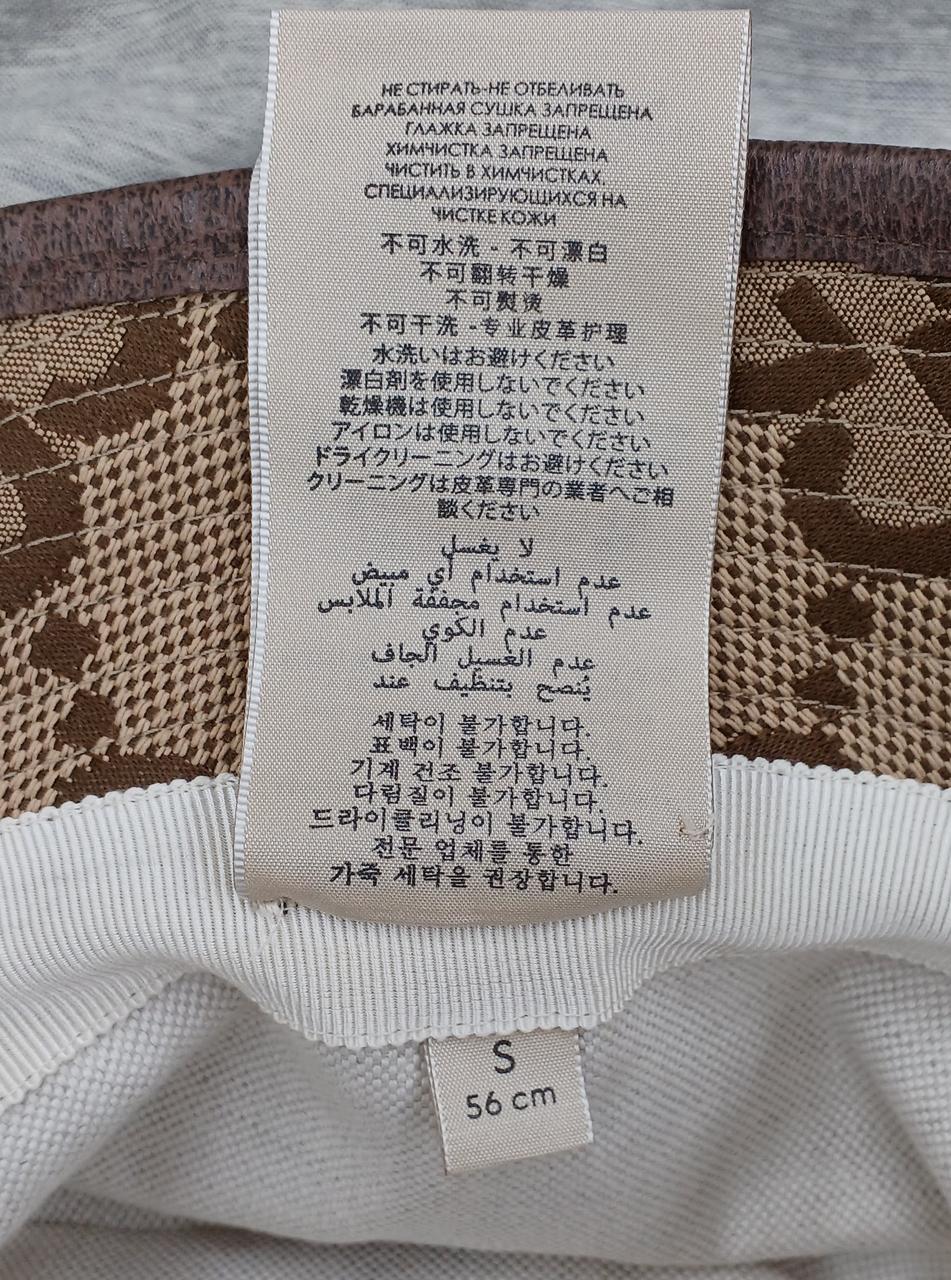 НЕ СТИРАТЬ-НЕ ОТБЕЛИВАТЬ
БАРАБАННАЯ СУШКА ЗАПРЕЩЕНА
ГЛАЖКА ЗАПРЕЩЕНА
ХИМЧИСТКА ЗАПРЕЩЕНА
ЧИСТИТЬ В ХИМЧИСТКАХ,
СПЕЦИАЛИЗИРУЮЩИХСЯ НА
ЧИСТКЕ КОЖИ
不可水洗 - 不可漂白
不可翻转干燥
不可熨烫
不可干洗 -专业皮革护理
水洗いはお避けください
漂白剤を使用しないでください
乾燥機は使用しないでください
アイロンは使用しないでください
ドライクリーニングはお避けください
クリーニングは皮革専門の業者へご相
談ください
لا يغسل
عدم استخدام أي مبيض
عدم استخدام مجففة الملابس
عدم الكوي
عدم الغسيل الجاف
يُنصح بتنظيف عند
세탁이 불가합니다.
표백이 불가합니다.
기계 건조 불가합니다.
다림질이 불가합니다.
드라이클리닝이 불가합니다.
전문 업체를 통한
가죽 세탁을 권장합니다.
S
56 cm